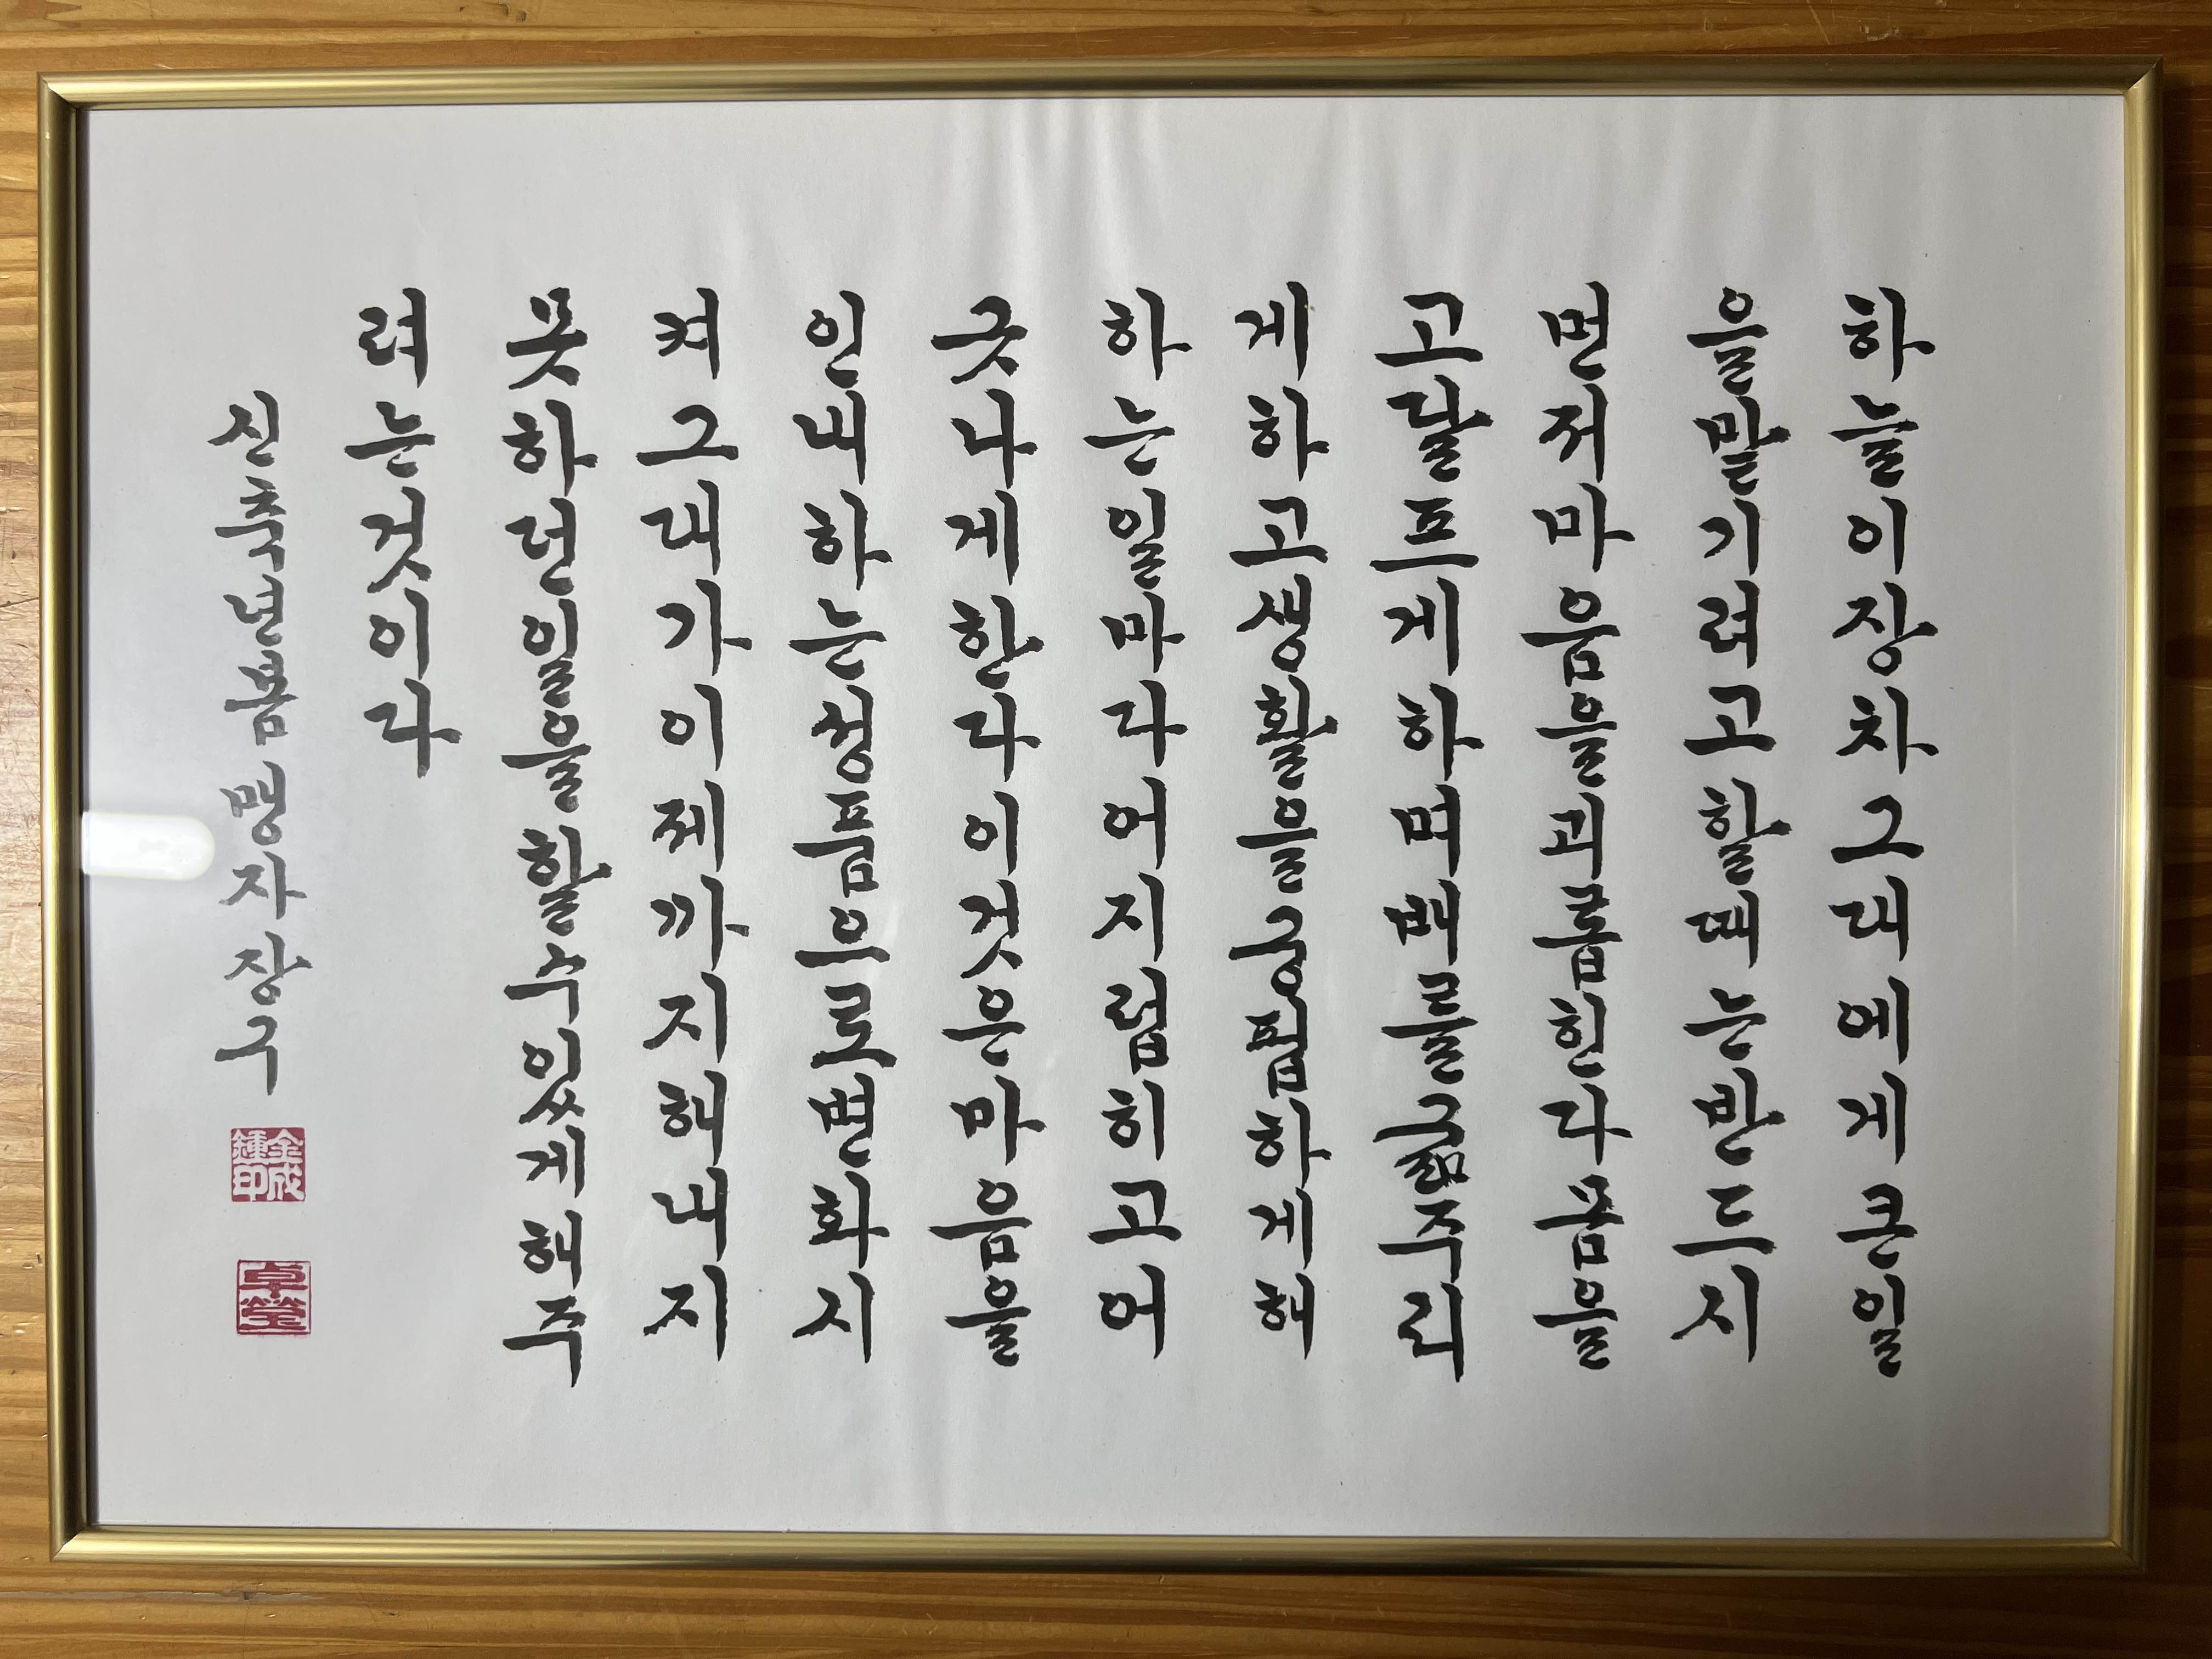 하늘이장차그대에게큰일
을맡기려고할때는반드시
먼저마음을괴롭힌다몸을
고달프게하며배를굶주리
게하고생활을궁핍하게해
하는일마다어지럽히고어
긋나게한다이것은마음을
인내하는성품으로변화시
켜그대가이제까지해내지
못하던일을할수있게해주
려는것이다
신축년봄맹자장구
金成鍾印